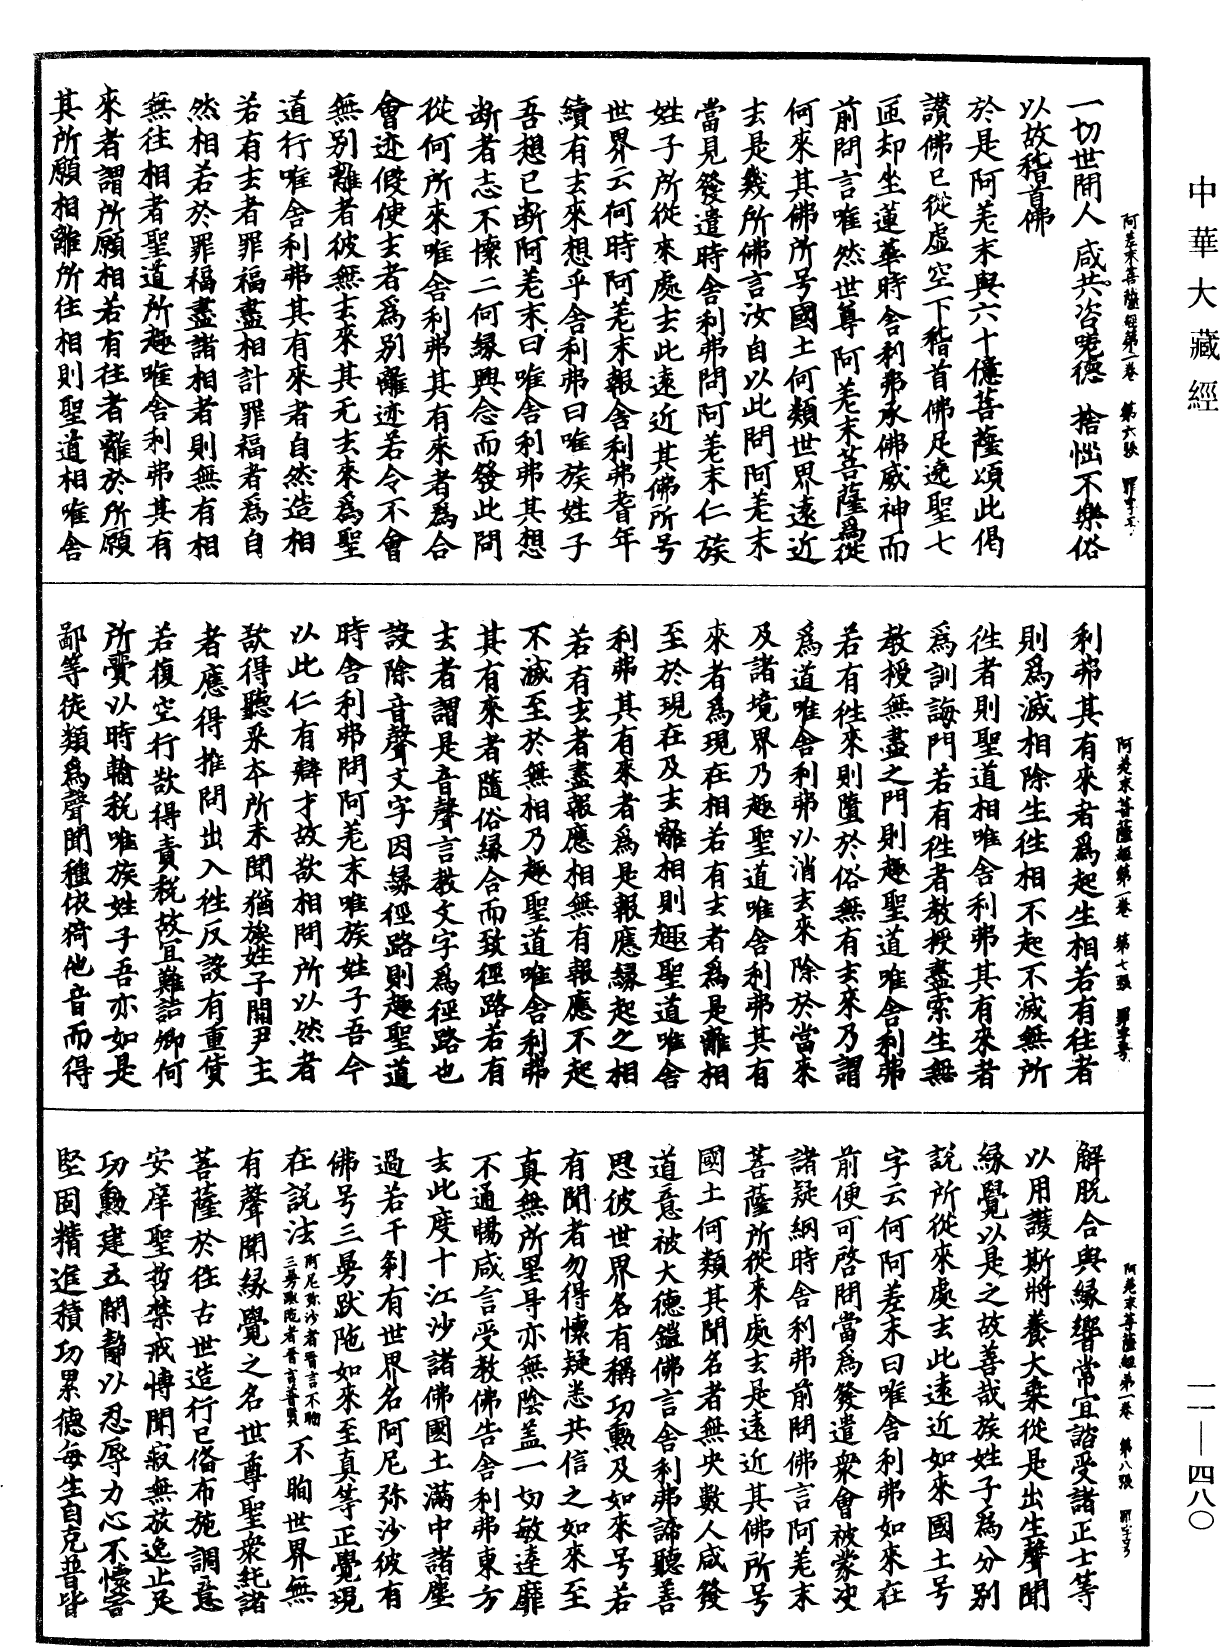 中華大藏經
一一—四八〇
阿差末菩薩經第一卷　第六張
一切世間人　咸共咨嗟德　捨惱不樂俗
以故稽首佛
於是阿差末與六十億菩薩頌此偈
讚佛已從虛空下稽首佛足遶聖七
匝却坐蓮華時舍利弗承佛威神而
前問言唯然世尊阿差末菩薩為從
何來其佛所号國土何類世界遠近
去是幾所佛言汝自以此問阿差末
當見發遣時舍利弗問阿差末仁族
姓子所從來處去此遠近其佛所号
世界云何時阿差末報舍利弗耆年
續有去來想乎舍利弗曰唯族姓子
吾想已断阿差末曰唯舍利弗其想
断者志不懷二何緣興念而發此問
從何所來唯舍利弗其有來者為合
會迹假使去者為別離迹若令不會
無別離者彼無去來其无去來為聖
道行唯舍利弗其有來者自然造相
若有去者罪福盡相計罪福者為自
然相若於罪福盡諸相者則無有相
無往相者聖道所趣唯舍利弗其有
來者謂所願相若有往者離於所願
其所願相離所住相則聖道相唯舍
阿差末菩薩經第一卷　第七張
利弗其有來者為起生相若有往者
則為滅相除生往相不起不滅無所
往者則聖道相唯舍利弗其有來者
為訓誨門若有往者教授盡索生無
教授無盡之門則趣聖道唯舍利弗
若有往來則墮於俗無有去來乃謂
為道唯舍利弗以消去來除於當來
及諸境界乃趣聖道唯舍利弗其有
來者為現在相若有去者為是離相
至於現在及去離相則趣聖道唯舍
利弗其有來者為是報應緣起之相
若有去者盡報應相無有報應不起
不滅至於無相乃趣聖道唯舍利弗
其有來者隨俗緣合而致徑路若有
去者謂是音聲言教文字為徑路也
設除音聲文字因緣徑路則趣聖道
時舍利弗問阿差末唯族姓子吾今
以此仁有辯才故欲相問所以然者
欲得聽采本所未聞猶族姓子開尹主
者應得推問出入往反設有重貨
若復空行欲得責稅故宜難詰卿何
所賷以時輸稅唯族姓子吾亦如是
鄙等徒類為聲聞種依猗他音而得
阿差末菩薩經第一卷　第八張
解脫合與緣響常宜諮受諸正士等
以用護斯將養大乘從是出生聲聞
緣覺以是之故善哉族姓子為分別
說所從來處去此遠近如來國土号
字云何阿差末曰唯舍利弗如來在
前便可啓問當為發遣衆會被蒙决
諸疑網時舍利弗前問佛言阿差末
菩薩所從來處去是遠近其佛所号
國土何類其聞名者無央數人咸發
道意被大德鎧佛言舍利弗諦聽善
思彼世界名有稱功勳及如來号若
有聞者勿得懷疑悉共信之如來至
真無所罣㝵亦無陰蓋一切敏達靡
不通暢咸言受教佛告舍利弗東方
去此度十江沙諸佛國土滿中諸塵
過若干剎有世界名阿尼弥沙彼有
佛号三曼跋陁如來至真等正覺現
在說法阿尼弥沙者晉言不眴三曼跋陁者晉言普賢不眴世界無
有聲聞緣覺之名世尊聖衆純諸
菩薩於往古世造行已俻布施調意
安庠聖哲禁戒博聞寂無放逸止足
功勳建立閑靜以忍辱力心不懷害
堅固精進積功累德每生自克普皆